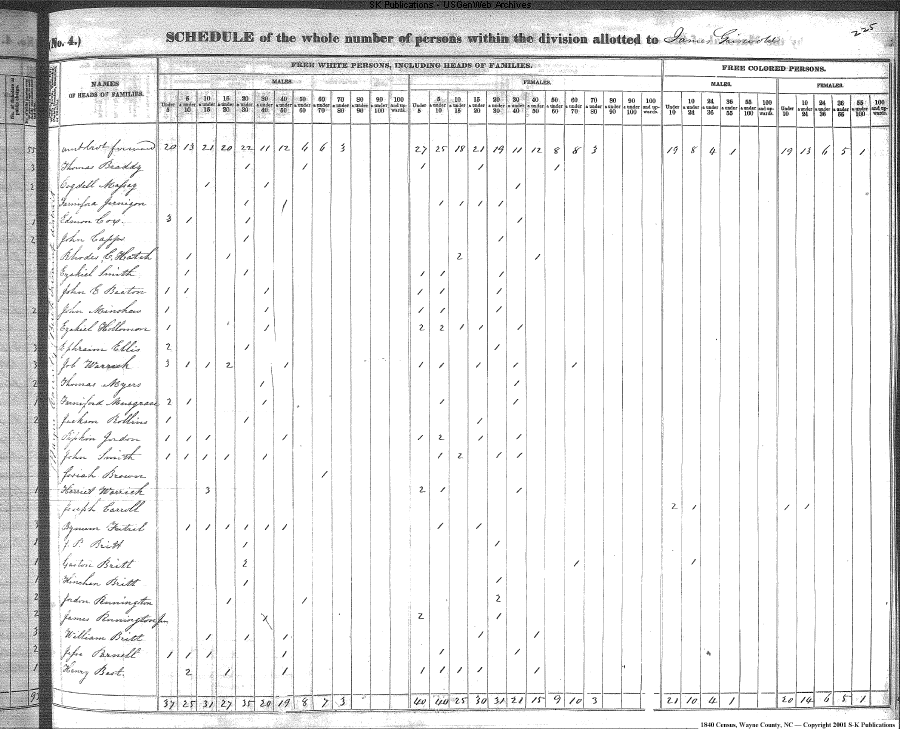 SK Publications - USGenWeb Archives
(No. 4.) SCHEDULE of the whole number of persons within the division allotted to James Griswold 225
FREE WHITE PERSONS, INCLUDING HEADS OF FAMILIES. FREE COLORED PERSONS.
NAMES OF HEADS OF FAMILIES. MALES. FEMALES. MALES. FEMALES.
Under 5 5 & under 10 10 & under 15 15 & under 20 20 & under 30 30 & under 40 40 & under 50 50 & under 60 60 & under 70 70 & under 80 80 & under 90 90 & under 100 100 and upwards. Under 5 5 & under 10 10 & under 15 15 & under 20 20 & under 30 30 & under 40 40 & under 50 50 & under 60 60 & under 70 70 & under 80 80 & under 90 90 & under 100 100 and upwards. Under 10 10 & under 24 24 & under 36 36 & under 55 55 & under 100 100 and upwards. Under 10 10 & under 24 24 & under 36 36 & under 55 55 & under 100 100 and upwards.
forward 20 13 21 20 22 11 12 6 6 3 27 25 18 21 19 11 12 8 8 3 19 8 4 1 19 13 6 5 1
Thomas Braddy 1 1 1 1 1
Cogdell Massey 1 1 1
Jernigan 1 1 1 1 1 1
Edmon Cox 3 1 1 1
John Capps 1 1
Rhodes C. Hatch 1 1 2 1
Ezekiel Smith 1 1 1 1 1
John E Becton 1 1 1 1 1 1
John Minshew 1 1 1 1 1
Ezekiel Hollomon 1 1 2 2 1 1 1
Ephraim Ellis 2 1 1
Job Warrick 3 1 1 2 1 1 1 1 1 1
Thomas Myers 1 1
Musgrave 2 1 1 1 1
Jackson Rollins 1 1 1
Gordon 1 1 1 1 1 2 1 1
John Smith 1 1 1 1 1 1 2 1 1
Josiah Brown 1
Harriet Warrick 3 2 1 1
Joseph Carroll 2 1 1 1
1 1 1 1 1 1 1 1
J. P. Britt 1 1
Gaston Britt 2 1 1
Hinchen Britt 1 1
Jordon Pennington 1 1 2
James Pennington Jr 1 2 1
William Britt 1 1 1 1 1
Parnell 1 1 1 1 1 1
Henry Best. 2 1 1 1 1 1 1 1
37 25 31 27 35 20 19 8 7 3 40 40 25 30 31 21 15 9 10 3 21 10 4 1 20 14 6 5 1
1840 Census, Wayne County, NC — Copyright 2001 S-K Publications